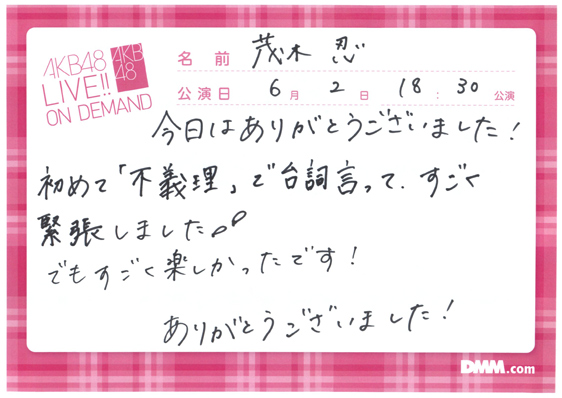 AKB48
LIVE!!
ON DEMAND
AKB
48
名前 茂木 忍
公演日 6月 2日 18:30 公演
今日はありがとうございました!
初めて「不義理」で台詞言って、すごく
緊張しました
でもすごく楽しかったです!
ありがとうございました!
DMM.com